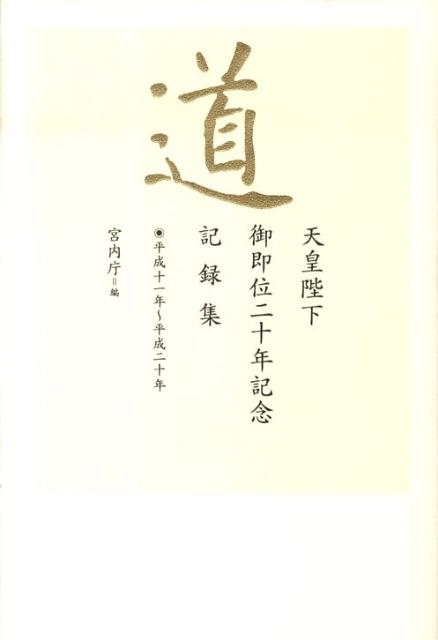 道
天皇陛下
御即位二十年記念
記録集
◉平成十一年〜平成二十年
宮内庁＝編